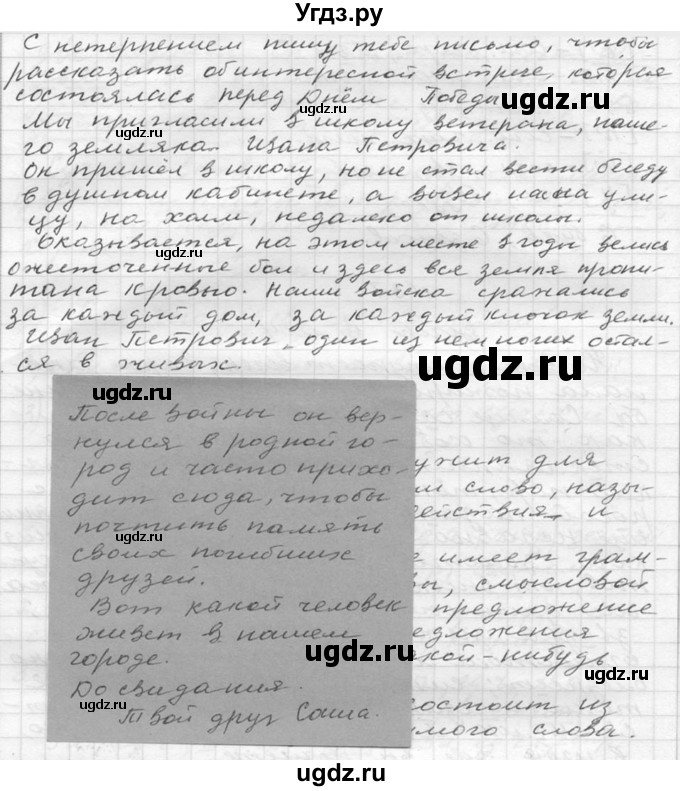 Угдз.ру
С нетерпением пишу тебе письмо, чтобы
рассказать об интересной встрече, которая
состоялась перед Днём Победы
Мы пригласили в школу ветерана, наше-
го земляка. Ивана Петровича.
Он пришёл в школу, но не стал вести беседу
в душном кабинете, а вывел нас на ули-
цу, на холм, недалеко от школы.
Оказывается, на этом месте в годы велись
ожесточенные бои и здесь вся земля пропи-
тана кровью. Наши войска сражались
за каждый дом, за каждый клочок земли.
Иван Петрович один из немногих остал-
ся в живых.
После войны он вер-
нулся в родной го-
род и часто прихо-
дит сюда, чтобы
почтить память
своих погибших
друзей.
Вот какой человек
живет в нашем
городе.
До свидания.
Твой друг Саша.
ужит для
м слово, назы-
ействия и
е имеет грам-
вы, смысловой
предложение
едложения
акой-нибудь
состоит из
мого слова.
ugdz.ru
ugdz.ru
ugdz.ru
ugdz.ru
ugdz.ru
ugdz.ru
ugdz.ru
ugdz.ru
ugdz.ru
ugdz.ru
ugdz.ru
ugdz.ru
ugdz.ru